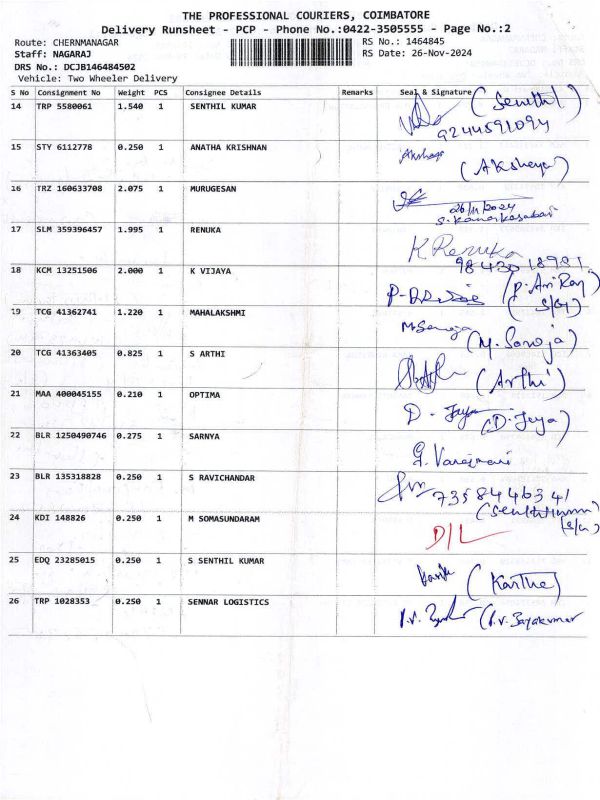 THE PROFESSIONAL COURIERS, COIMBATORE
Delivery Runsheet - PCP - Phone No.:0422-3505555 - Page No.:2
Route: CHERNMANAGAR RS No.: 1464845
Staff: NAGARAJ RS Date: 26-Nov-2024
DRS No.: DCJB146484502
Vehicle: Two Wheeler Delivery
S No Consignment No Weight PCS Consignee Details Remarks Seal & Signature
14 TRP 5580061 1.540 1 SENTHIL KUMAR (Senthil)
9244591094
15 STY 6112778 0.250 1 ANATHA KRISHNAN
(Aksheya)
16 TRZ 160633708 2.075 1 MURUGESAN
26/11/2024
17 SLM 359396457 1.995 1 RENUKA
K Renuka
98430 18981
18 KCM 13251506 2.000 1 K VIJAYA
(S/o)
19 TCG 41362741 1.220 1 MAHALAKSHMI
(M. Saroja)
20 TCG 41363405 0.825 1 S ARTHI
(Arthi)
21 MAA 400045155 0.210 1 OPTIMA
D. Jaya
(D. Jaya)
22 BLR 1250490746 0.275 1 SARNYA
23 BLR 135318828 0.250 1 S RAVICHANDAR
7358446341
24 KDI 148826 0.250 1 M SOMASUNDARAM
D/L
25 EDQ 23285015 0.250 1 S SENTHIL KUMAR
(Karthe)
26 TRP 1028353 0.250 1 SENNAR LOGISTICS